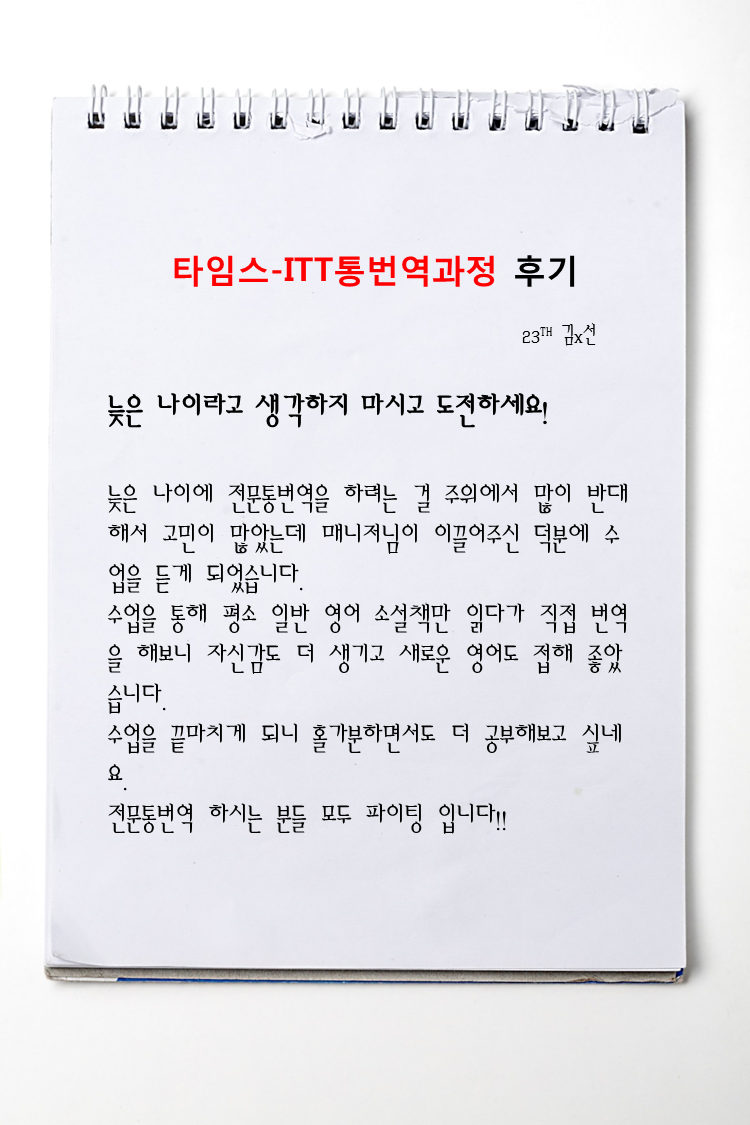 타임스-ITT통번역과정 후기
23TH 김x선
늦은 나이라고 생각하지 마시고 도전하세요!
늦은 나이에 전문통번역을 하려는 걸 주위에서 많이 반대
해서 고민이 많았는데 매니저님이 이끌어주신 덕분에 수
업을 듣게 되었습니다.
수업을 통해 평소 일반 영어 소설책만 읽다가 직접 번역
을 해보니 자신감도 더 생기고 새로운 영어도 접해 좋았
습니다.
수업을 끝마치게 되니 홀가분하면서도 더 공부해보고 싶네
요.
전문통번역 하시는 분들 모두 파이팅 입니다!!